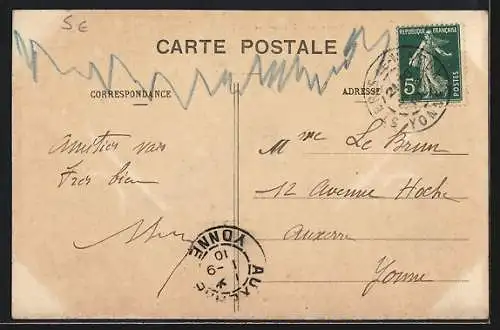 5€
CARTE POSTALE
RÉPUBLIQUE FRANÇAISE
5c
POSTES
CORRESPONDANCE
ADRESSE
Amitiés vais
Très bien
Mme Le Brun
12 Avenue Hoche
Auxerre
Yonne
YONNE
YONNE
9
10